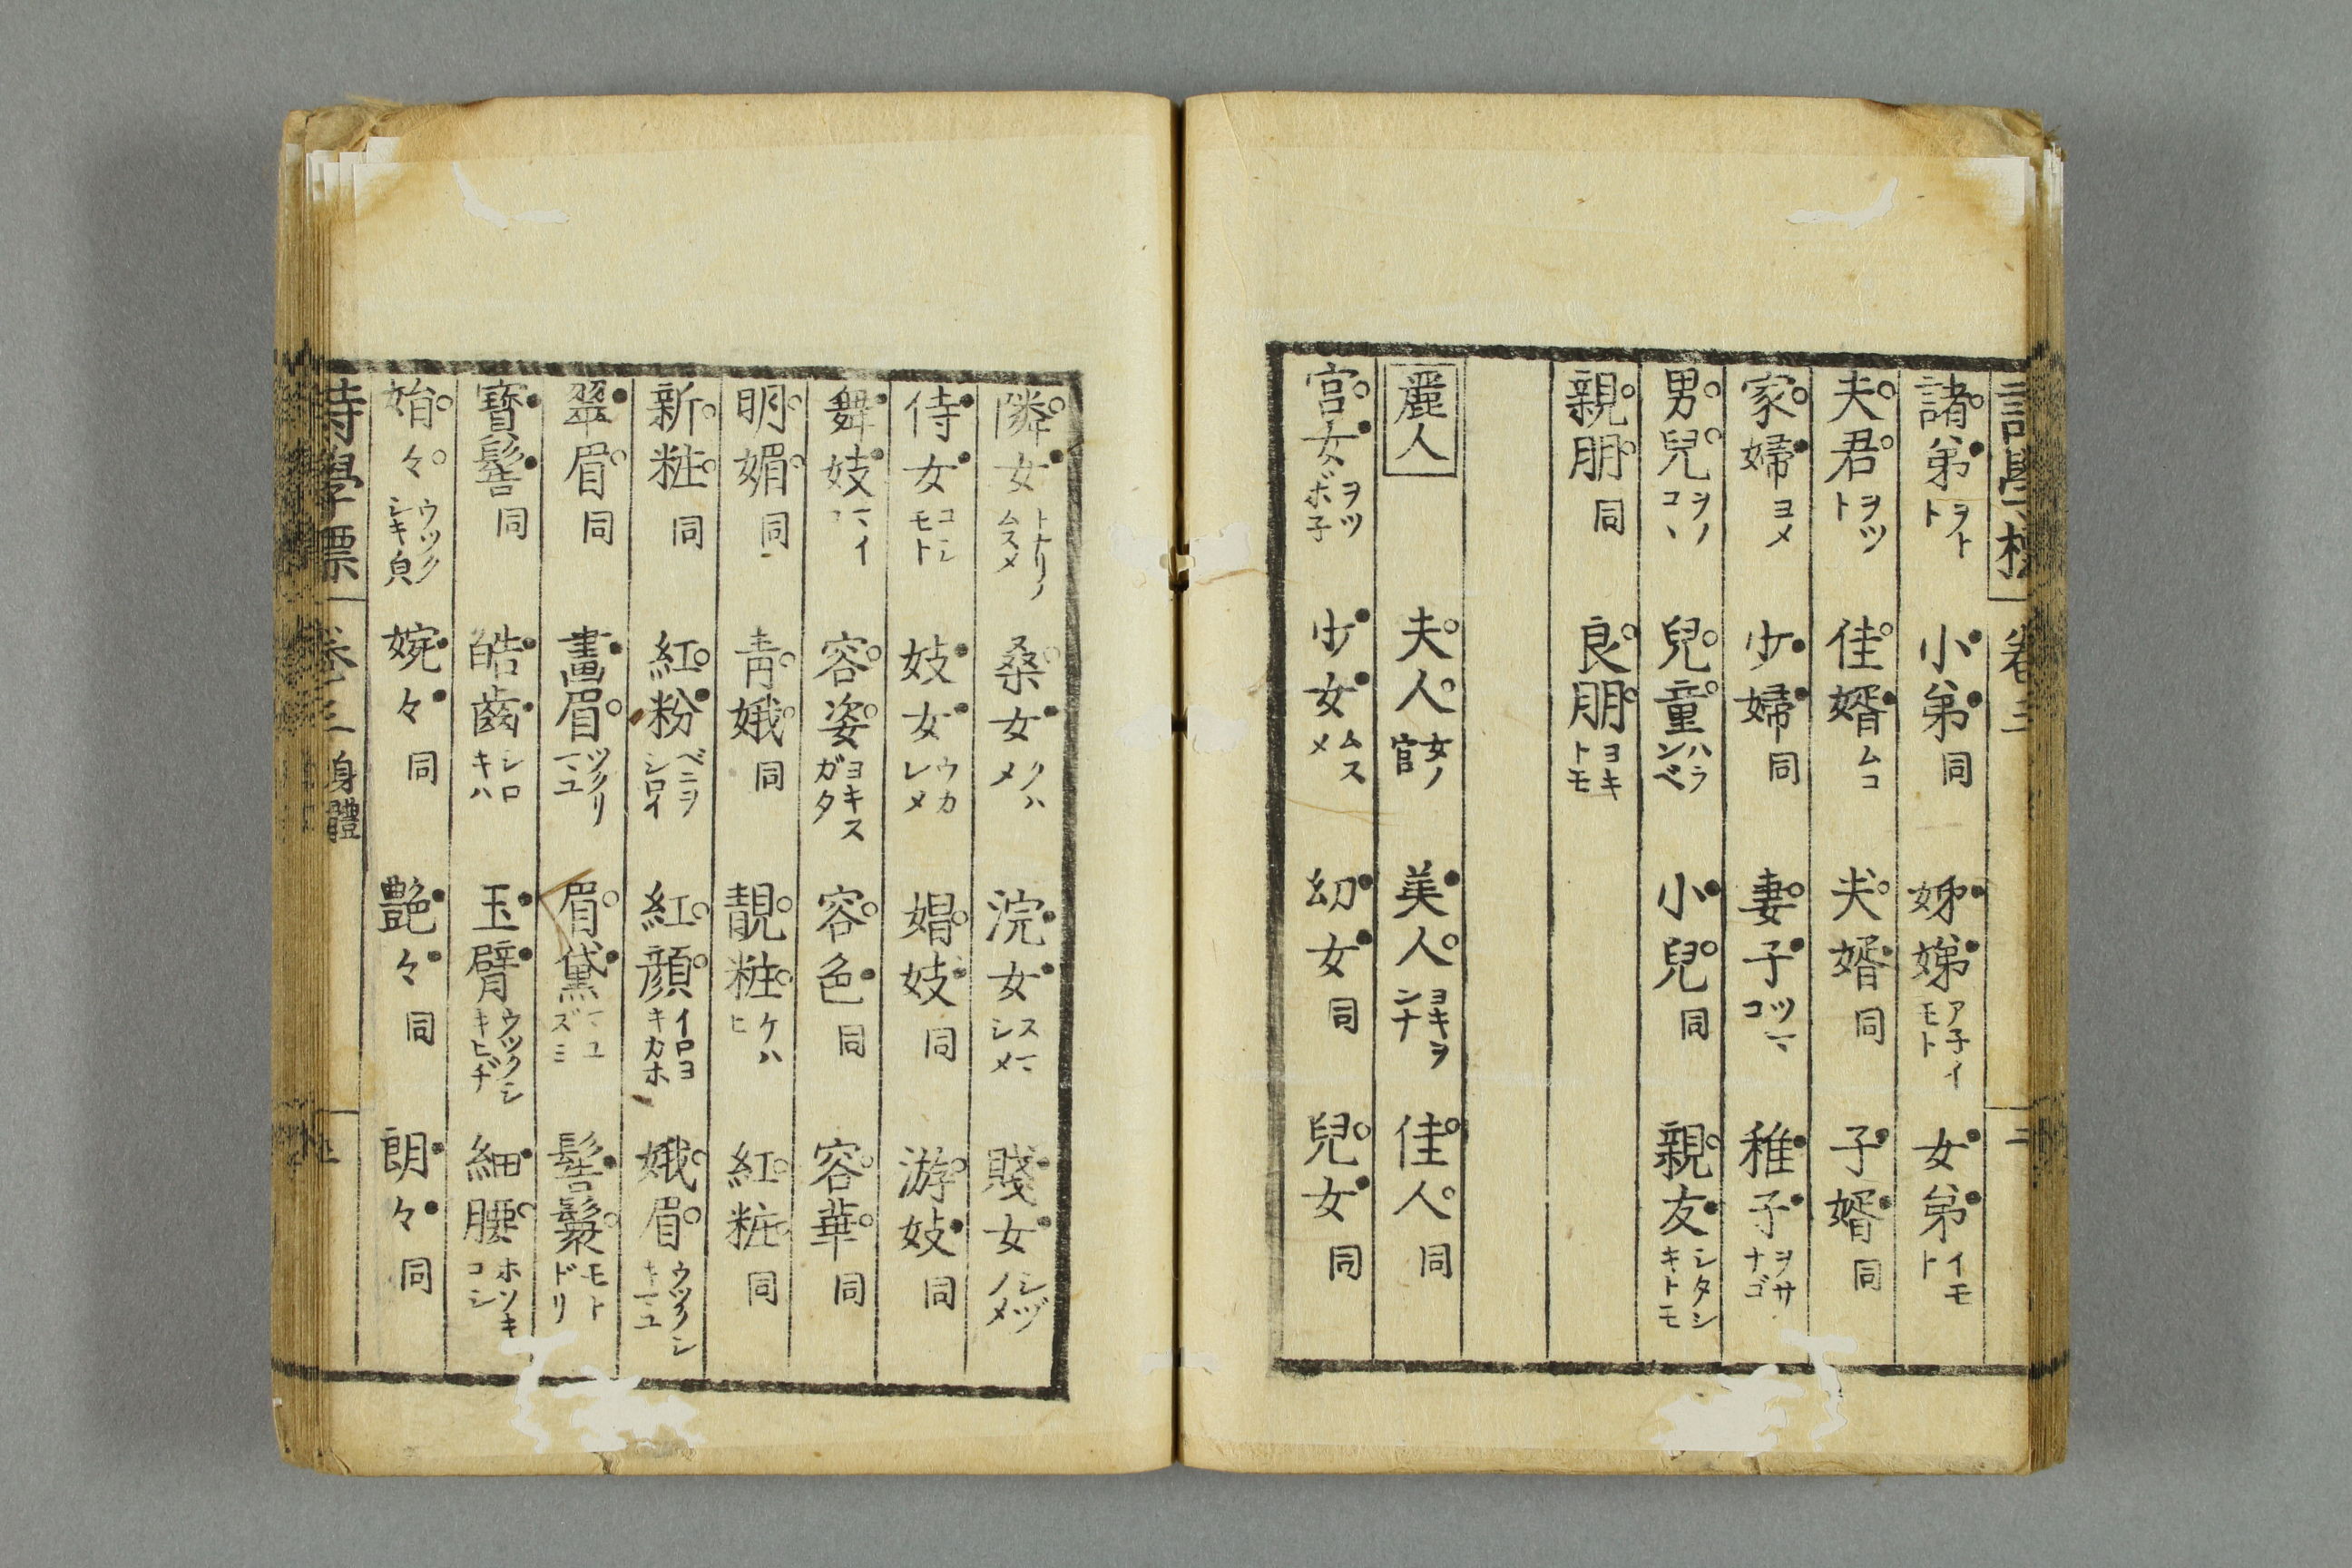 諸弟 ヲトト 小弟 同 姊娣 ア子イモト 女弟 イモト
夫君 ヲツト 佳婿 ムコ 夫婿 同 子婿 同
家婦 ヨメ 少婦 同 妻子 ツマコ 稚子 ヲサナゴ
男兒 ヲノコヽ 兒童 ハランベ 小兒 同 親友 シタシキトモ
親朋 同 良朋 ヨキトモ
麗人 夫人 女ノ官 美人 ヨキヲンナ 佳人 同
宮女 ヲツボ子 少女 ムスメ 幼女 同 兒女 同
隣女 トナリノムスメ 桑女 クハメ 浣女 スマシメ 賤女 シヅノメ
侍女 コシモト 妓女 ウカレメ 娼妓 同 游妓 同
舞妓 マイコ 容姿 ヨキスガタ 容色 同 容華 同
明媚 同 青娥 同 靚粧 ケハヒ 紅粧 同
新粧 同 紅粉 ベニヲシロイ 紅顔 イロヨキカホ 娥眉 ウツクシキマユ
翠眉 同 畫眉 ツクリマユ 眉黛 マユズミ 髻鬟 モトドリ
寶髻 同 皓齒 シロキハ 玉臂 ウツクシキヒヂ 細腰 ホソキコシ
々 ウツクシキ皃 婉々 同 艶々 同 朗々 同
詩學標 卷三 身體